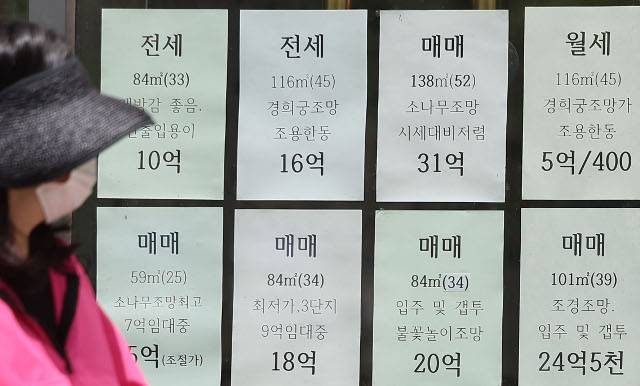 전세
84㎡(33)
좋음.
10억
전세
116㎡(45)
경희궁조망
조용한동
16억
매매
138㎡(52)
소나무조망
시세대비저렴
31억
월세
116㎡(45)
경희궁조망가
조용한동
5억/400
매매
59㎡(25)
소나무조망최고
7억임대중
5억(조절가)
매매
84㎡(34)
최저가.3단지
9억임대중
18억
매매
84㎡(34)
입주 및 갭투
불꽃놀이조망
20억
매매
101㎡(39)
조경조망.
입주 및 갭투
24억5천